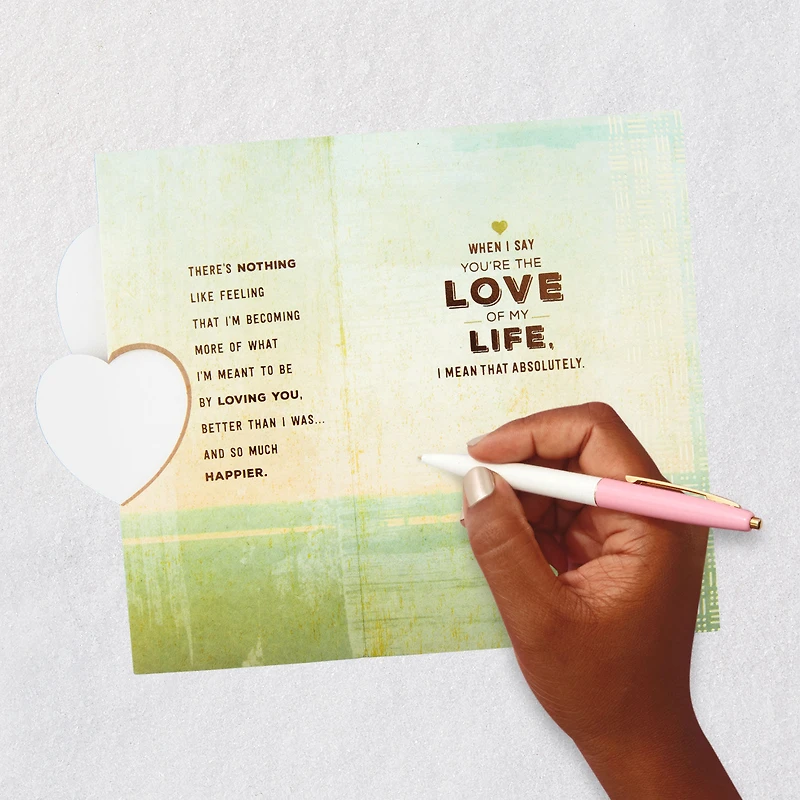 THERE'S NOTHING
LIKE FEELING
THAT I'M BECOMING
MORE OF WHAT
I'M MEANT TO BE
BY LOVING YOU,
BETTER THAN I WAS...
AND SO MUCH
HAPPIER.
WHEN I SAY
YOU'RE THE
LOVE
OF MY
LIFE,
I MEAN THAT ABSOLUTELY.